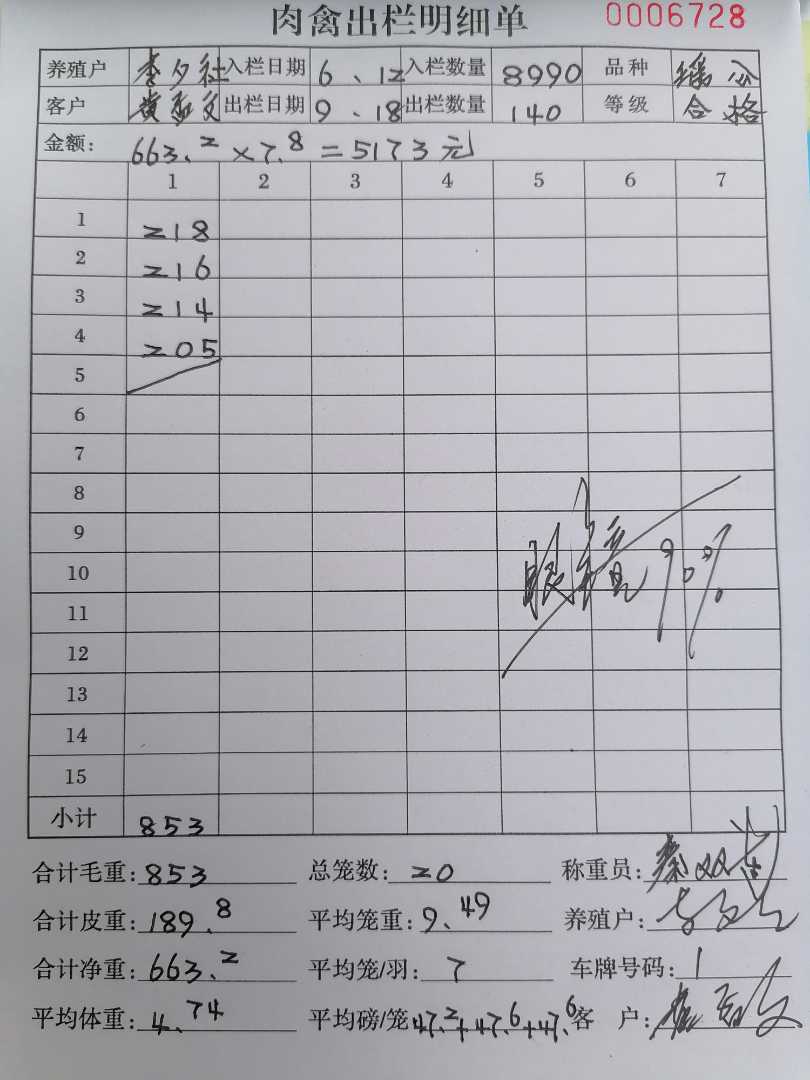 肉禽出栏明细单 0006728
养殖户 李夕社 入栏日期 6、12 入栏数量 8990 品种 瑶公
客户 出栏日期 9、18 出栏数量 140 等级 合格
金额: 663.2×7.8=5173元
1 2 3 4 5 6 7
1 218
2 216
3 214
4 205
5
6
7
8
9
10 90%
11
12
13
14
15
小计 853
合计毛重: 853 总笼数: 20 称重员: 秦双
合计皮重: 189.8 平均笼重: 9.49 养殖户:
合计净重: 663.2 平均笼/羽: 7 车牌号码: 1
平均体重: 4.74 平均磅/笼 47.2+47.6+47.6 客 户: